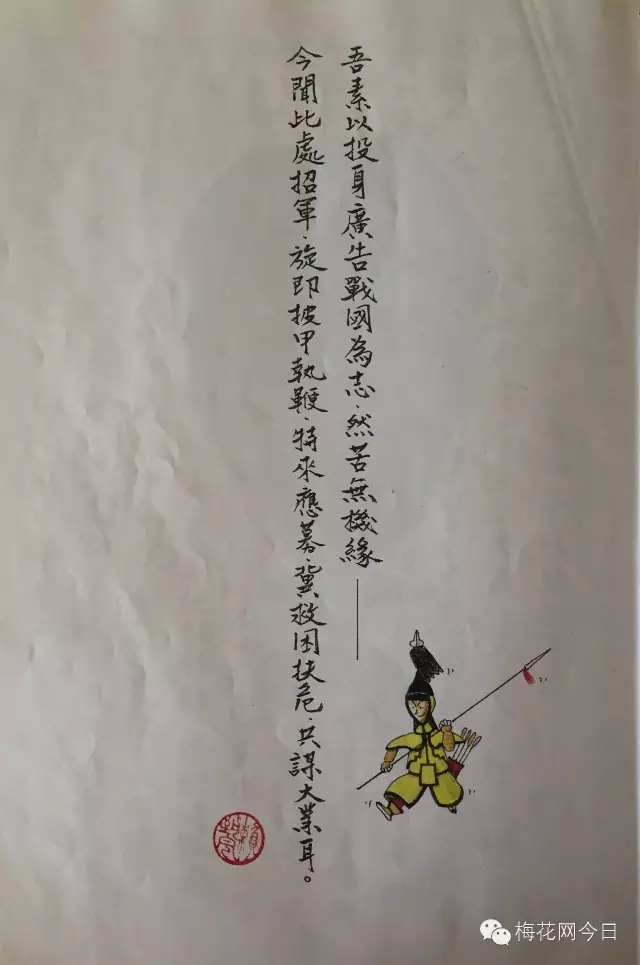 吾素以投身廣告戰國為志，然苦無機緣——
今聞此處招軍，旋即披甲執鞭，特來應募，冀救困扶危，共謀大業耳。
梅花网今日